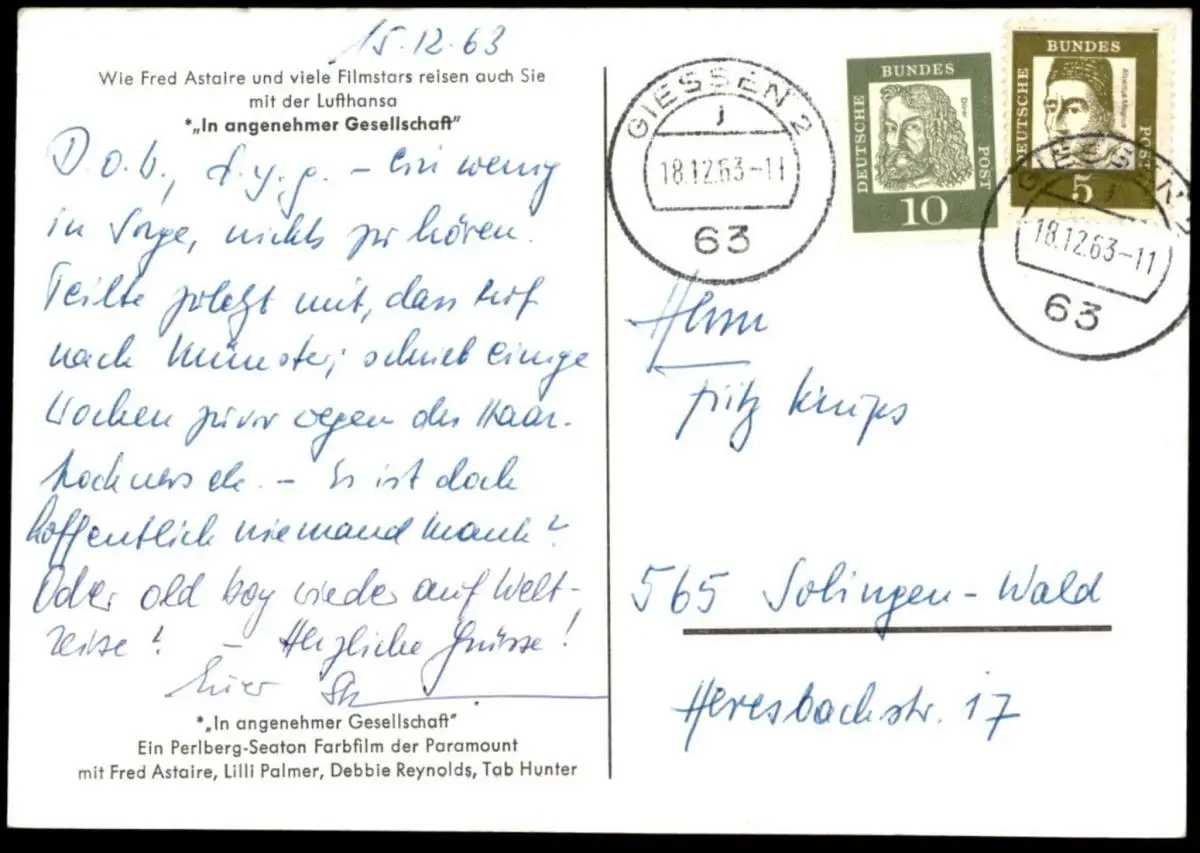 15.12.63
Wie Fred Astaire und viele Filmstars reisen auch Sie
mit der Lufthansa
*„In angenehmer Gesellschaft"
D.o.b., d.y.g. – Ein wenig
in Sorge, nichts zu hören.
Teilte zuletzt mit, dass
nach Münster; schrieb einige
Wochen zuvor wegen des Haar-
hochwerscle. – Es ist doch
hoffentlich niemand krank?
Oder old boy wieder auf Welt-
reise? – Herzliche Grüsse!
*„In angenehmer Gesellschaft"
Ein Perlberg-Seaton Farbfilm der Paramount
mit Fred Astaire, Lilli Palmer, Debbie Reynolds, Tab Hunter
GIESSEN 2
j
18.12.63-11
63
DEUTSCHE BUNDES POST
Dürer
10
DEUTSCHE BUNDES POST
Albertus Magnus
5
GIESSEN 2
j
18.12.63-11
63
Herrn
Fritz Krups
565 Solingen-Wald
Heresbachstr. 17